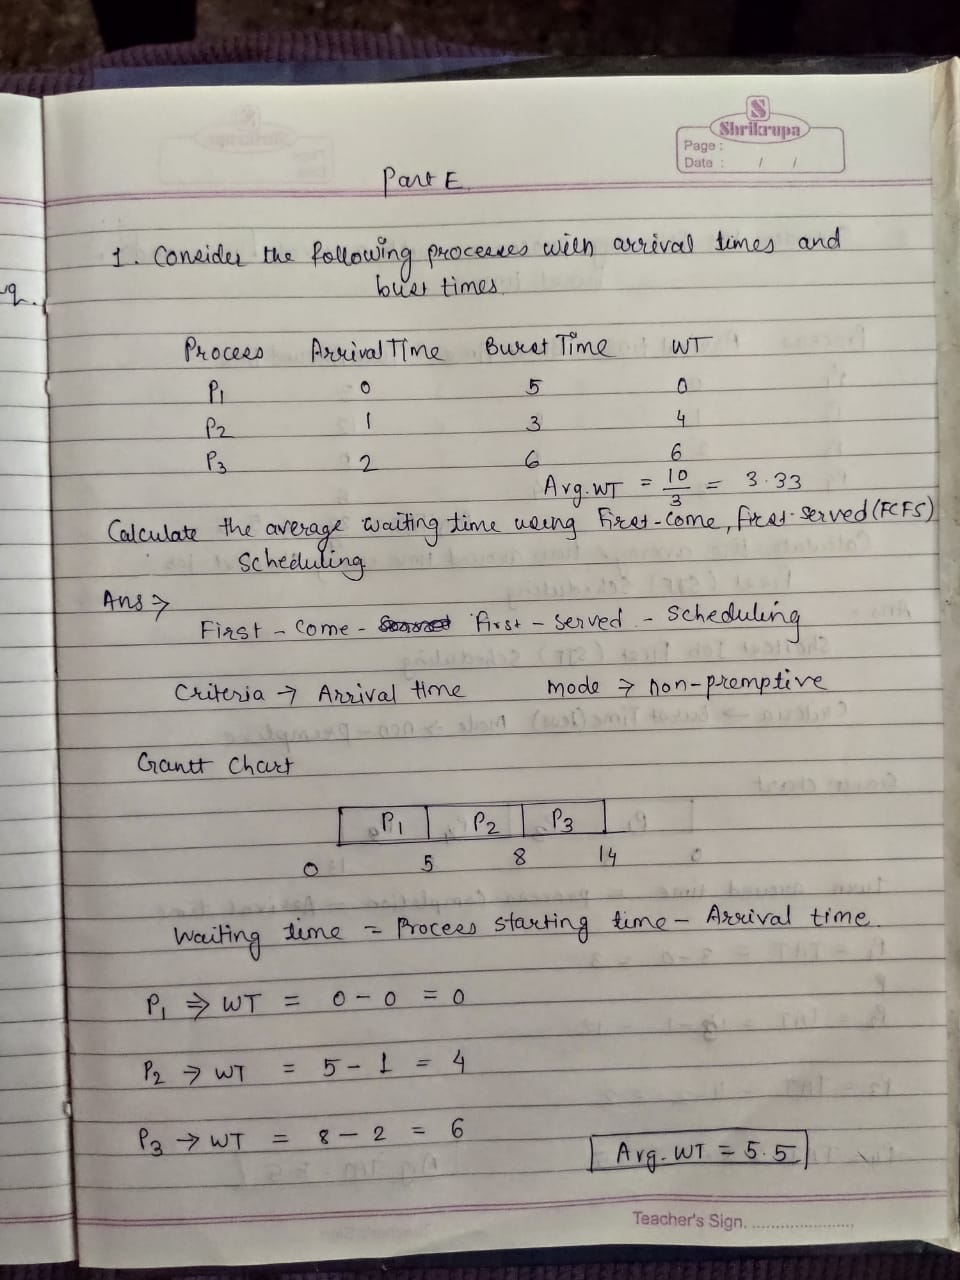 Shrikrupa
Page :
Date : / /
Part E.
1. Consider the following processes with arrival times and
burst times.
Process Arrival Time Burst Time WT
P1 0 5 0
P2 1 3 4
P3 2 6 6
Avg.WT = 10/3 = 3.33
Calculate the average waiting time using First-Come, first-served (FCFS)
Scheduling
Ans ⇒
First - Come - first - served - Scheduling
Criteria → Arrival time mode → non-premptive
Gantt Chart
P1 P2 P3
0 5 8 14
Waiting time = Process starting time - Arrival time.
P1 ⇒ WT = 0 - 0 = 0
P2 → WT = 5 - 1 = 4
P3 → WT = 8 - 2 = 6
Avg. WT = 5.5
Teacher's Sign. ......................